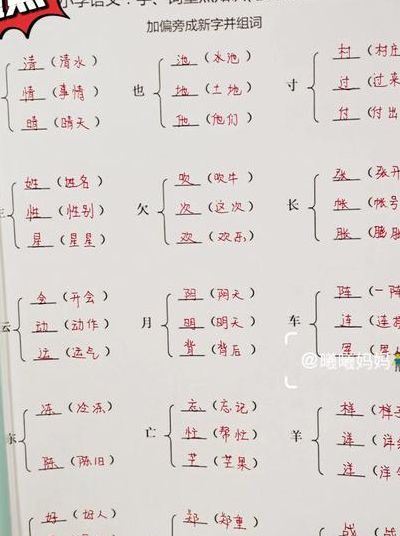 加偏旁成新字并组词
清（清水）
情（事情）
晴（晴天）
也
池（水池）
地（土地）
他（他们）
寸
村（村庄
过（过来
付（付出
姓（姓名）
性（性别）
星（星星）
欠
吹（吹牛）
次（这次）
欢（欢乐）
长
张（张开
帐（帐号
胀（膨胀
云
会（开会）
动（动作）
运（运气）
月
阴（阴天）
明（明天）
背（背后）
车
阵（一阵
连（连接
@曦曦妈妈
东
冻（冷冻）
陈（陈旧）
亡
忘（忘记）
忙（帮忙）
芒（芒果）
羊
样（样子
详（详细
洋（洋
好（好人）
郑（郑重）
战（战